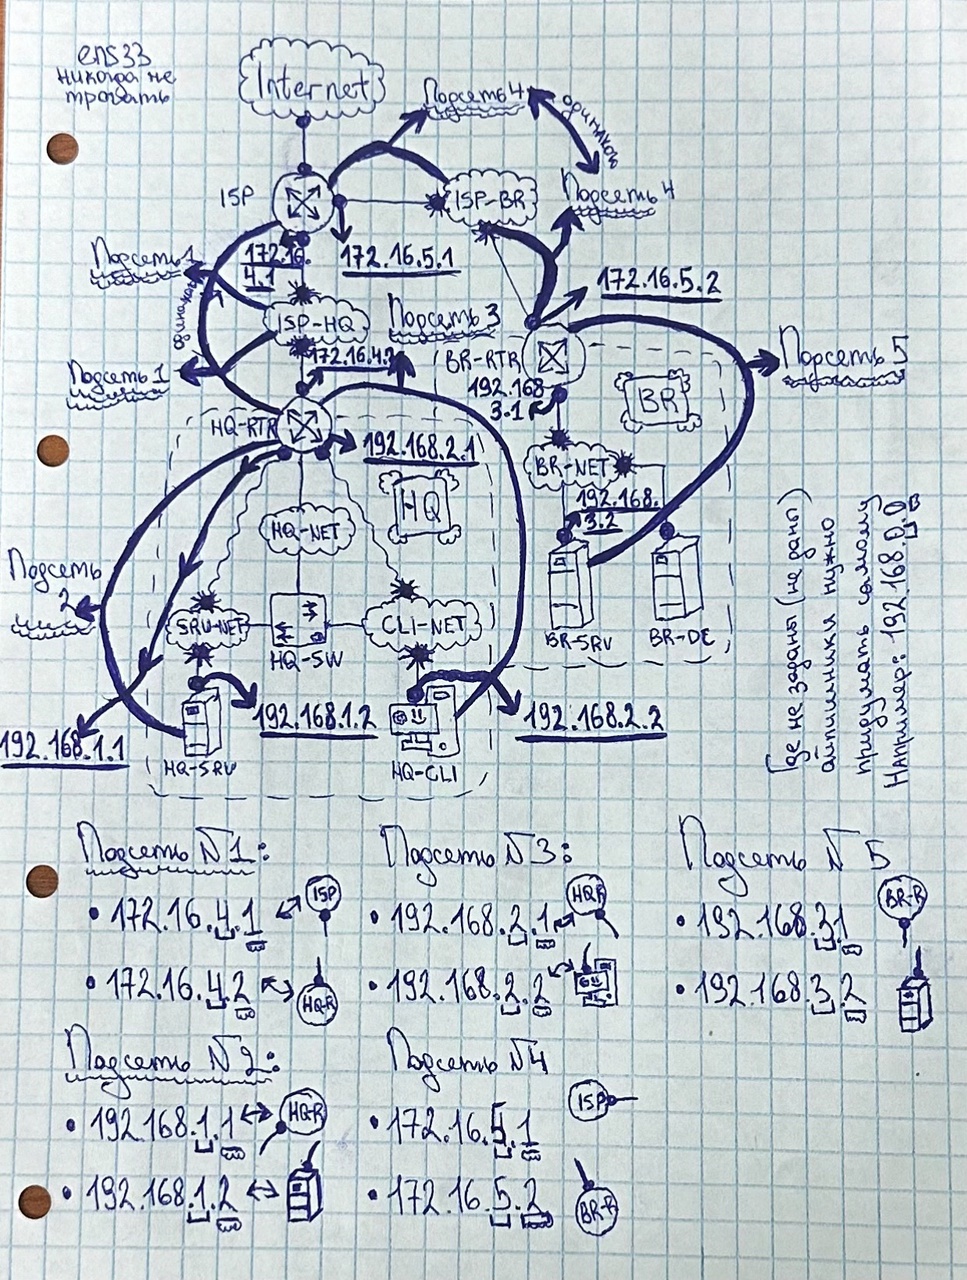 ens33
никогда не
трогать
Internet
Подсеть 4
одинаков
ISP
ISP-BR
Подсеть 4
Подсеть 1
172.16.
4.1
172.16.5.1
172.16.5.2
одинаков
ISP-HQ
Подсеть 3
Подсеть 1
172.16.4.2
BR-RTR
Подсеть 5
192.168
3.1
BR
HQ-RTR
192.168.2.1
BR-NET
HQ
192.168.
3.2
HQ-NET
Подсеть
2
SRV-NET
HQ-SW
CLI-NET
BR-SRV
BR-DE
192.168.1.1
192.168.1.2
192.168.2.2
HQ-SRV
HQ-CLI
Где не заданы (не даны)
айпишники нужно
придумать самому
Например: 192.168.0.0
Подсеть №1:
• 172.16.4.1
ISP
• 172.16.4.2
HQ-R
Подсеть №3:
• 192.168.2.1
HQR
• 192.168.2.2
Подсеть № 5
• 192.168.3.1
BR-R
• 192.168.3.2
Подсеть №2:
• 192.168.1.1
HQ-R
• 192.168.1.2
Подсеть №4
• 172.16.5.1
ISP
• 172.16.5.2
BR-R